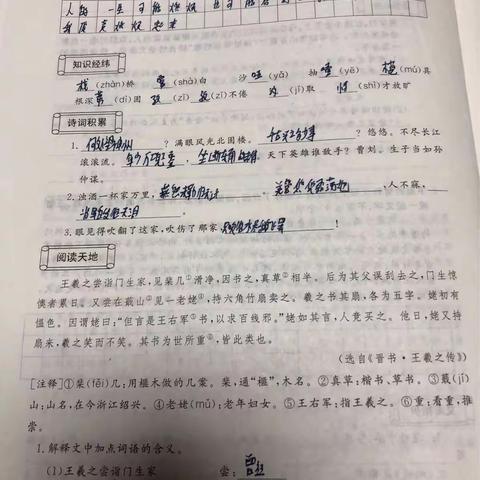 知识经纬
栈(zhàn)桥 (shà)白 沙哑(yǎ) 抽噎(yē) 模(mú)具
根深蒂(dì)固 孜(zī)孜不倦 汲(jí)取 恃(shì)才放旷
诗词积累
1. 何处望神州？满眼风光北固楼。千古兴亡多少事？悠悠。不尽长江
滚滚流。年少万兜鍪，坐断东南战未休。天下英雄谁敌手？曹刘。生子当如孙
仲谋。
2. 浊酒一杯家万里，燕然未勒归无计。羌管悠悠霜满地，人不寐，
3. 眼见得吹翻了这家，吹伤了那家，只吹的水尽鹅飞罢！
阅读天地
羲之尝诣门生家，见棐几①滑净，因书之，真草②相半。后为其父误刮去之，门生惊
懊者累日。又尝在蕺山③见一老姥④，持六角竹扇卖之。羲之书其扇，各为五字。姥初有
愠色。因谓姥曰：“但言是王右军⑤书，以求百钱邪。”姥如其言，人竞买之。他日，姥又持
扇来，羲之笑而不答。其书为世所重⑥，皆此类也。
（选自《晋书·王羲之传》）
[注释]①棐(fěi)几：用榧木做的几案。棐，通“榧”，木名。②真草：楷书、草书。③蕺(jí)
山：山名，在今浙江绍兴。④老姥(mǔ)：老年妇女。⑤王右军：指王羲之。⑥重：看重，推
崇。
1. 解释文中加点词语的含义。
(1)王羲之尝诣门生家 尝：曾经